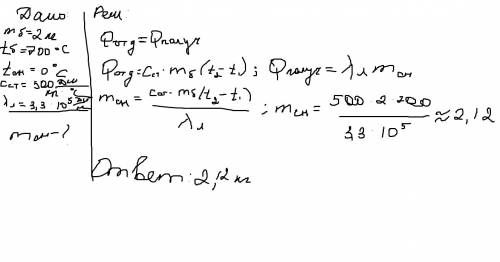 Дано
mб=2 кг
tб=700 °C
tсн=0°C
cст=500 Дж/кг °C
λл=3,3·10⁵ Дж/кг
mсн-?
Реш:
Qотд=Qполуч
Qотд=Cст·mб(t₂-t₁); Qполуч=λл mсн
mсн=Cст·mб(t₂-t₁)/λл; mсн=500·2·700/3,3·10⁵≈2,12
Ответ: 2,12 кг